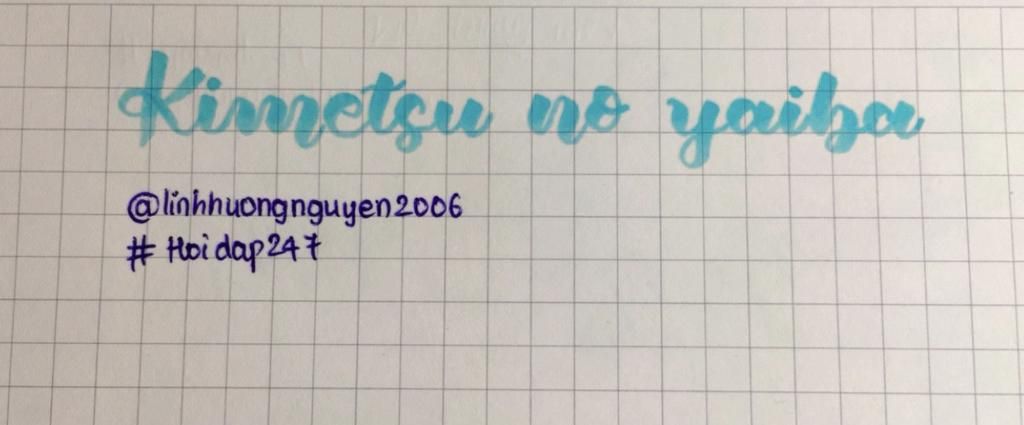 Kimetsu no yaiba
@linhhuongnguyen2006
# Hoidap247